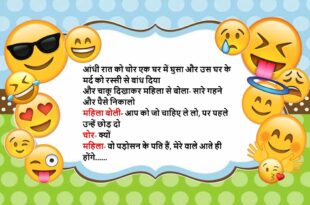 आंधी रात को चोर एक घर में घुसा और उस घर के
मर्द को रस्सी से बांध दिया
और चाकू दिखाकर महिला से बोला- सारे गहने
और पैसे निकालो
महिला बोली- आप को जो चाहिए ले लो, पर पहले
उन्हें छोड़ दो
चोर- क्यों
महिला- वो पड़ोसन के पति हैं, मेरे वाले आते ही
होंगे......